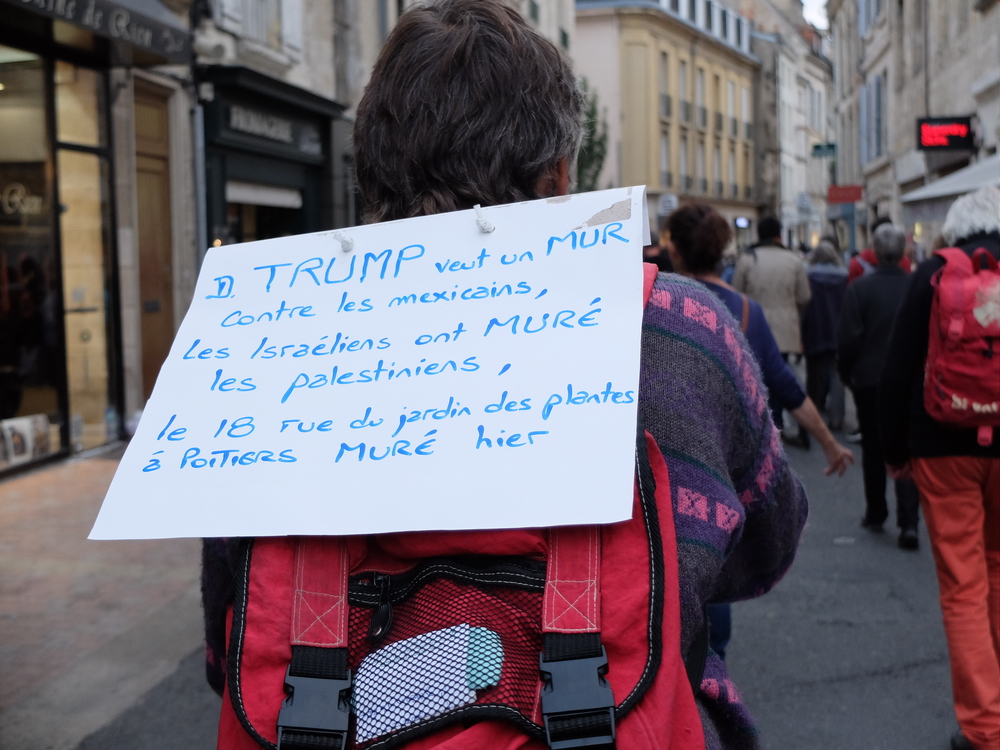 D. TRUMP veut un MUR
contre les mexicains,
Les Israéliens ont MURÉ
les palestiniens,
le 18 rue du jardin des plantes
à POITIERS MURÉ hier